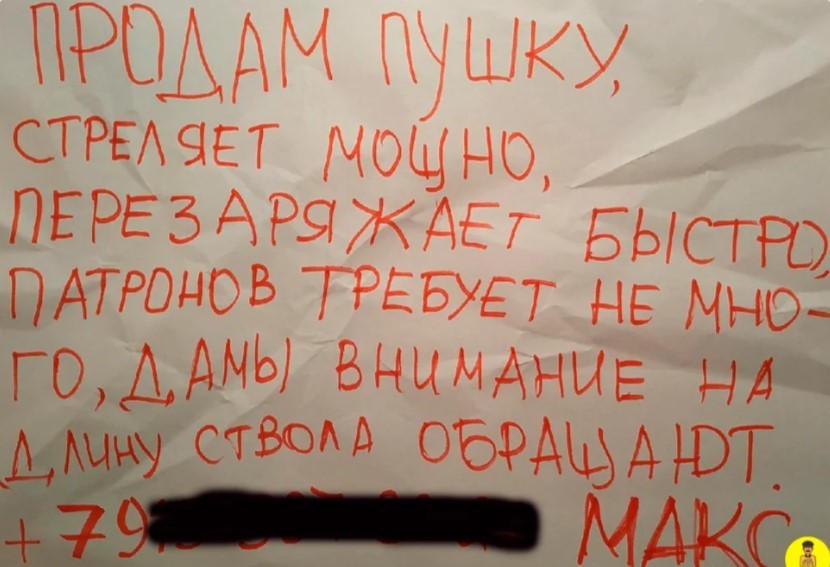 ПРОДАМ ПУШКУ,
СТРЕЛЯЕТ МОЩНО,
ПЕРЕЗАРЯЖАЕТ БЫСТРО,
ПАТРОНОВ ТРЕБУЕТ НЕ МНО-
ГО, ДАМЫ ВНИМАНИЕ НА
ДЛИНУ СТВОЛА ОБРАЩАЮТ.
+79 МАКС